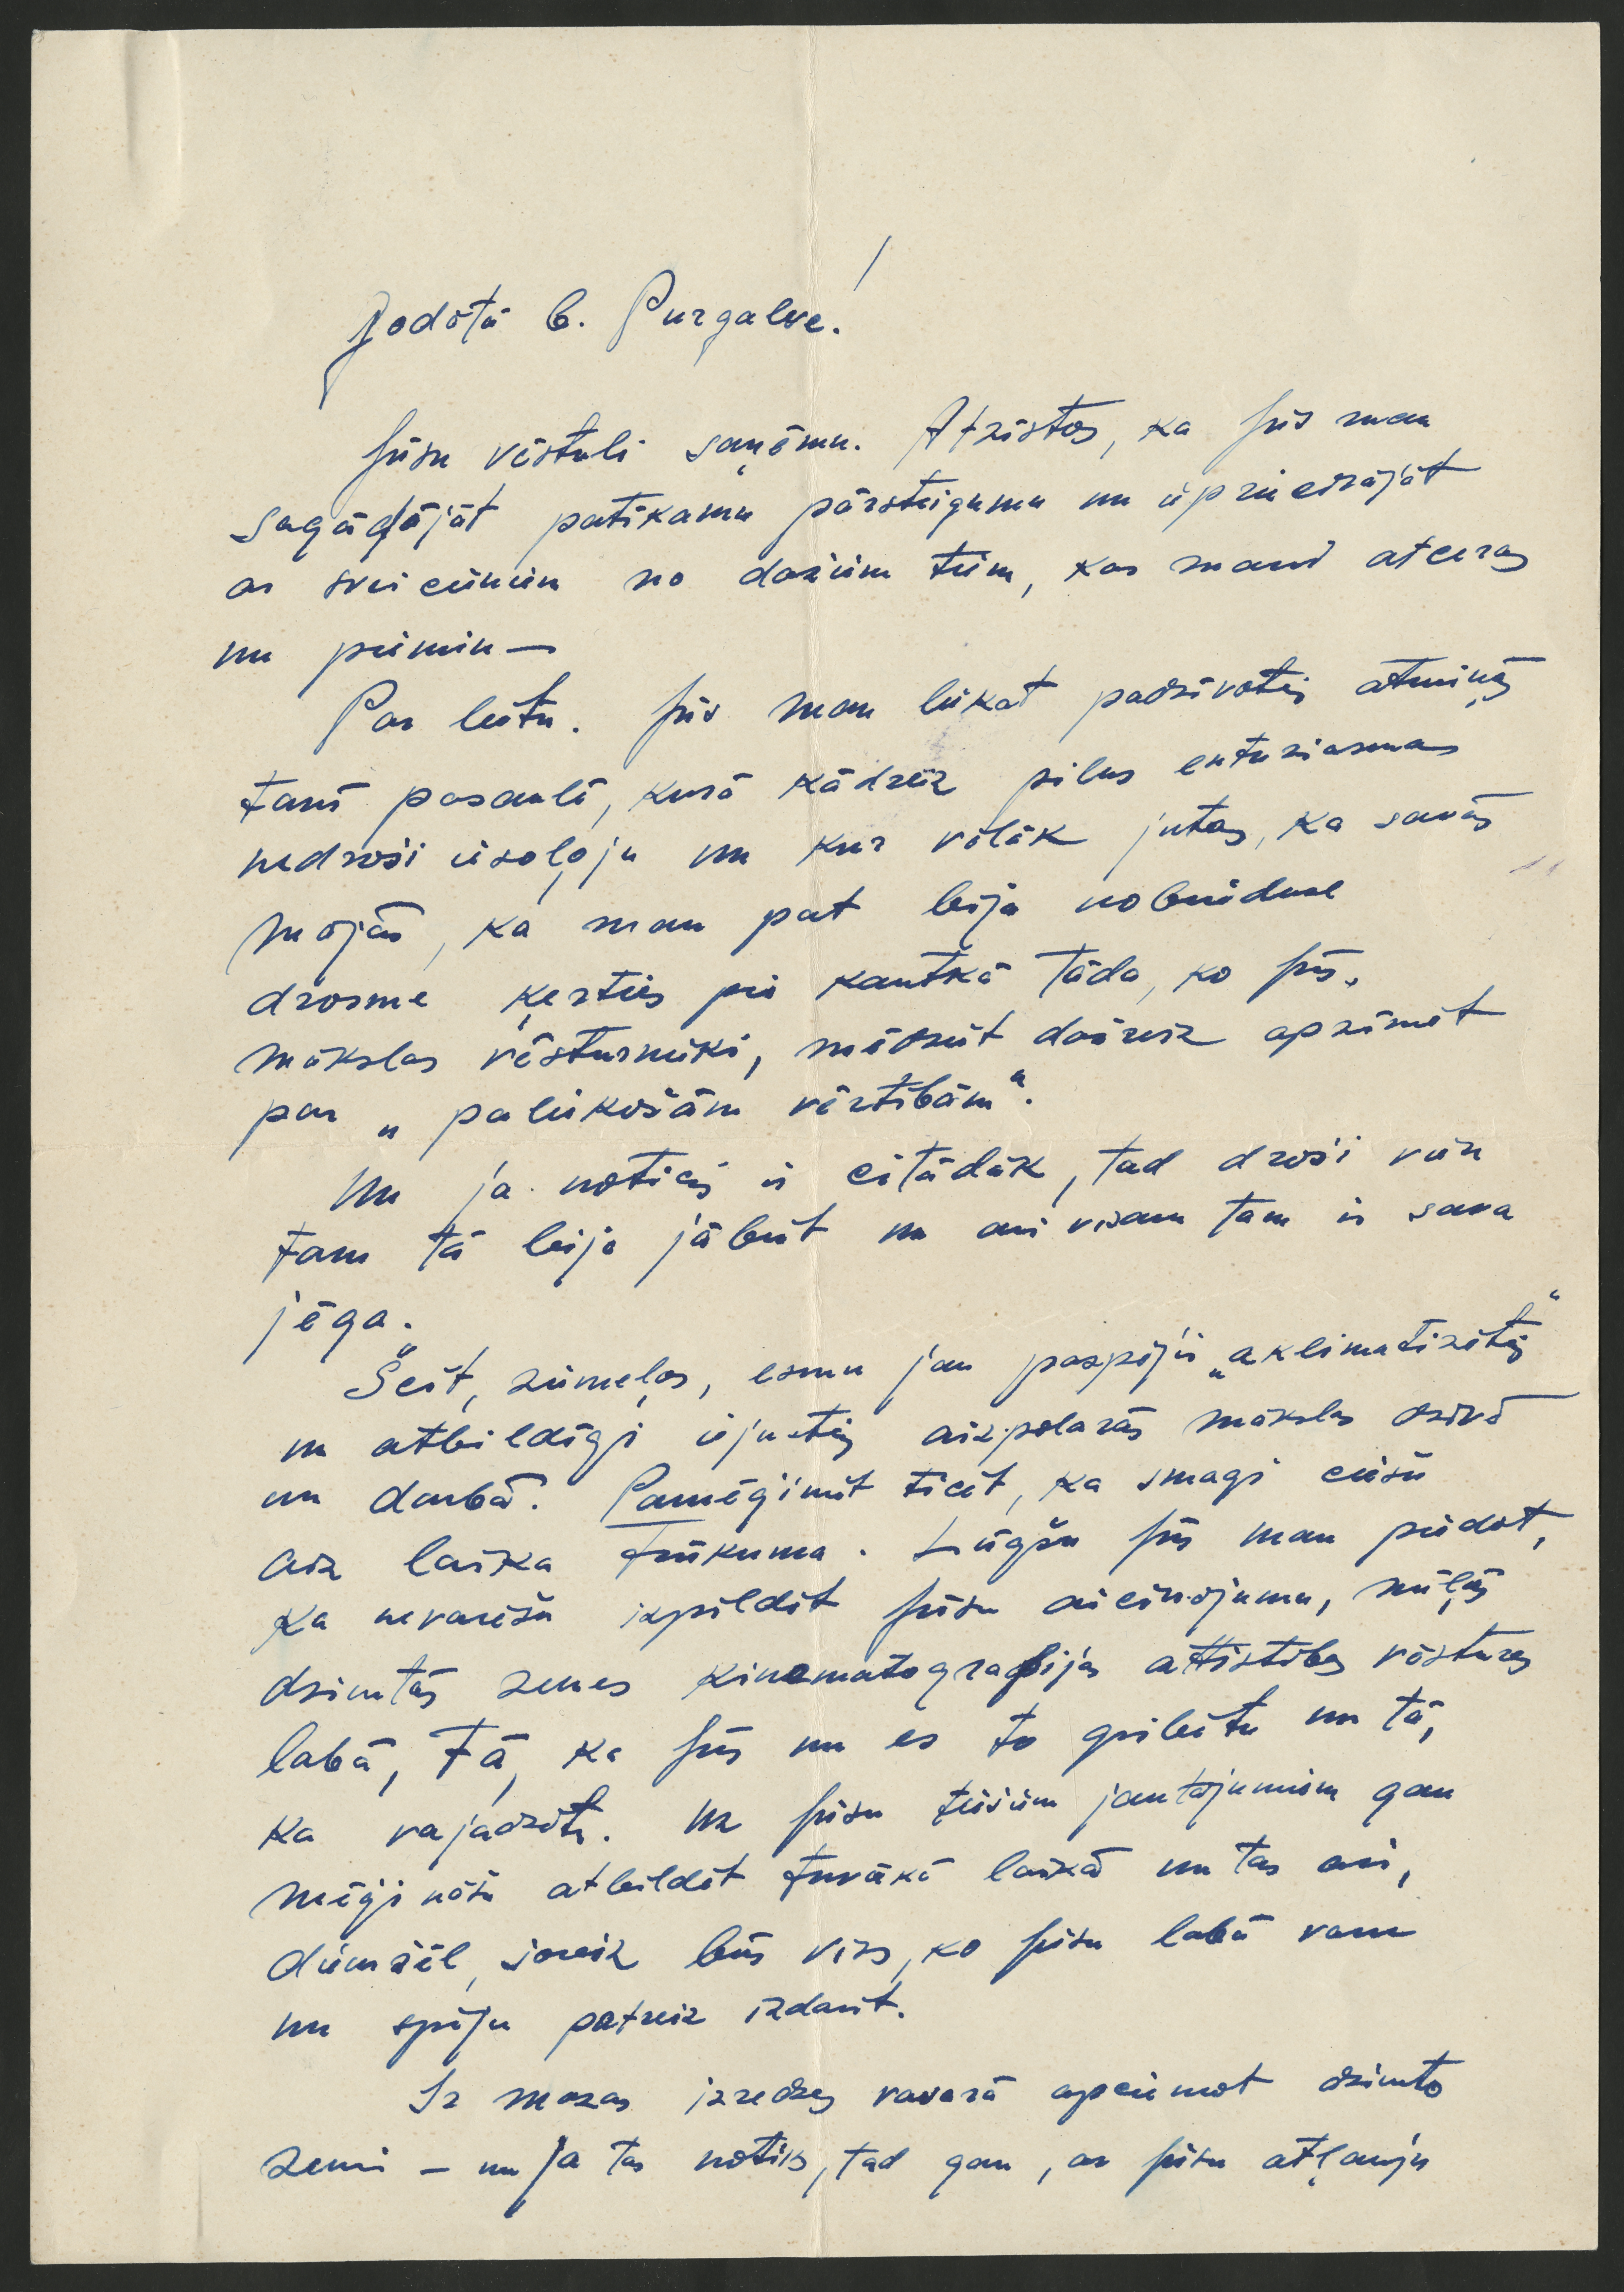 Godātā b. Purgalve!
Jūsu vēstuli saņēmu. Atzīstos, ka Jūs man
sagādājāt patīkamu pārsteigumu un iepriecinājāt
ar sveicieniem no dažiem tiem, kas mani atceras
un piemin —
Par lietu. Jūs man liekat padzīvoties atmiņās
tanī pasaulē, kurā kādreiz pilns entuziasma
nedroši iesoļoju un kur vēlāk jutos, ka savās
mājās, ka man pat bija nobriedusi
drosme ķerties pie kautkā tāda, ko Jūs,
mākslas vēsturnieki, mēdziet dažreiz apzīmēt
par „paliekošām vērtībām“.
Un ja noticis ir citādāk, tad droši vien
tam tā bija jābūt un arī visam tam ir sava
jēga.
Šeit, ziemeļos, esmu jau paspējis „aklimatizēties“
un atbildīgi iejusties aizpolārās mākslas dzīvē
un darbā. Pamēģiniet ticēt, ka smagi ciešu
aiz laika trūkuma. Lūgšu Jūs man piedot,
ka nevarēšu izpildīt Jūsu aicinājumu, mīļās
dzimtās zemes kinematografijas attīstības vēstures
labā, tā, ka Jūs un es to gribētu un tā,
ka vajadzētu. Uz Jūsu tiešiem jautājumiem gan
mēģināšu atbildēt tuvākā laikā un tas arī,
diemžēl, šoreiz būs viss, ko Jūsu labā varu
un spēju patreiz izdarīt.
Ir mazas izredzes vasarā apciemot dzimto
zemi – un ja tas notiks, tad gan, ar Jūsu atļauju